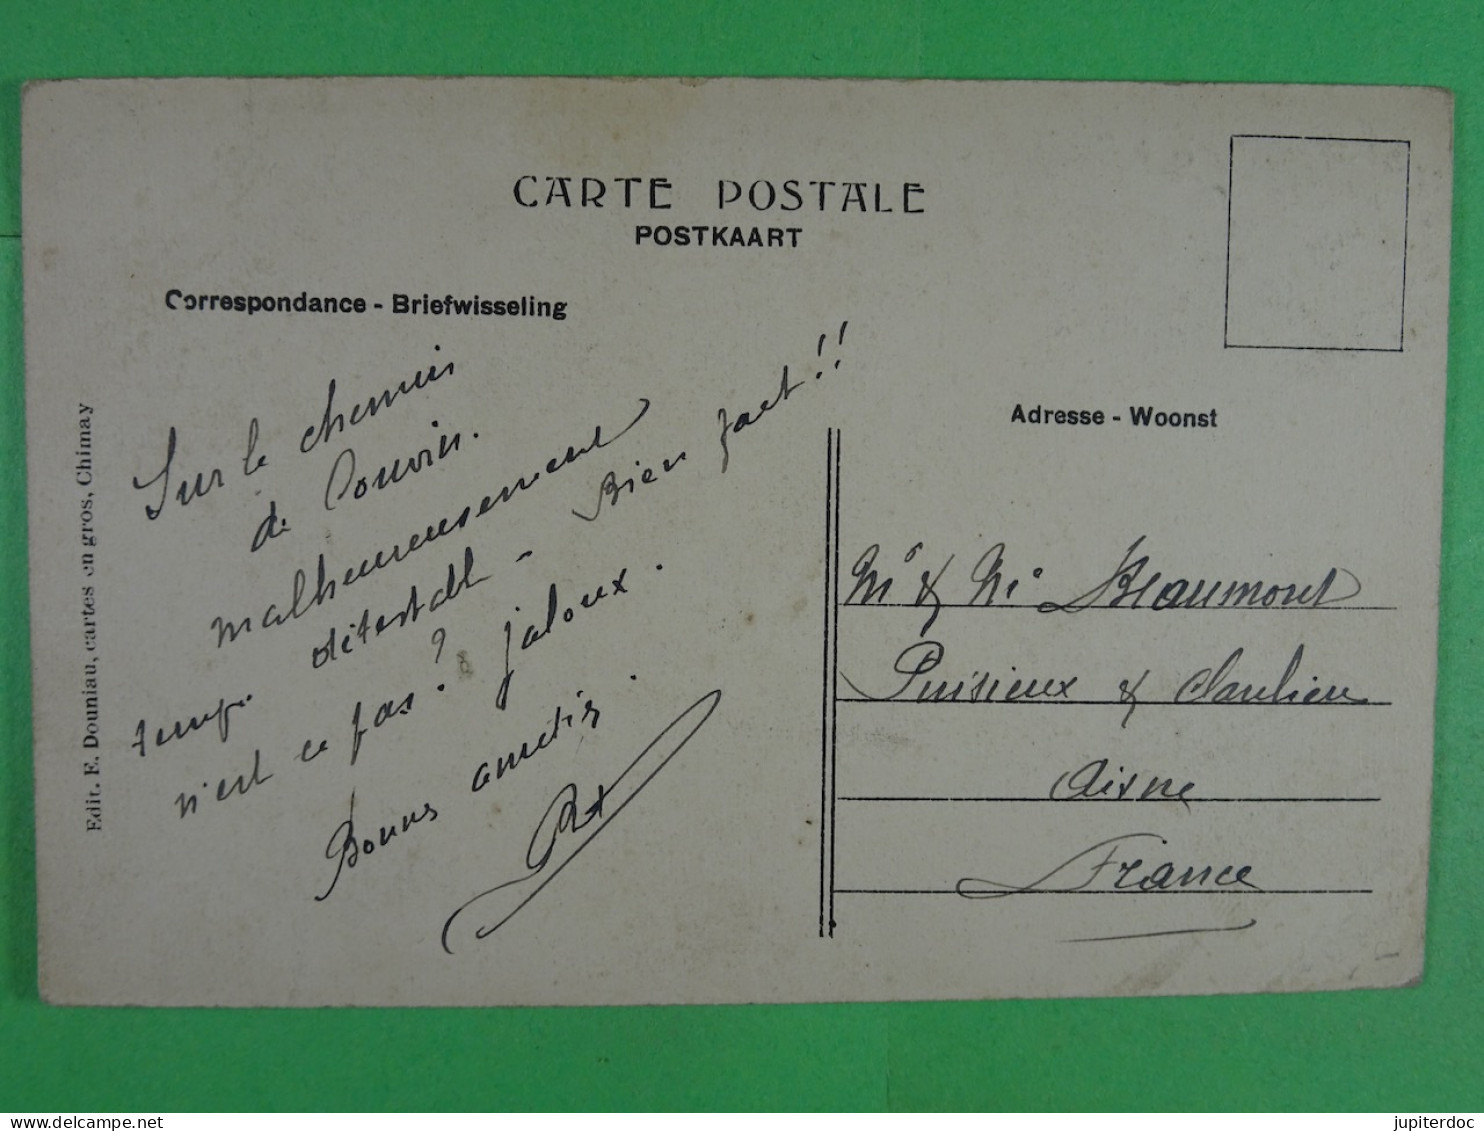 CARTE POSTALE
POSTKAART
Correspondance - Briefwisseling
Adresse - Woonst
Edit. F. Douniau, cartes en gros, Chimay
Sur le chemin
de Couvin.
malheureusement
temps détestable - Bien fait !!
n'est ce pas ? jaloux.
Bonnes amitiés.
Mr & Me Beaumont
Puisieux & Clanlieu
Aisne
France
jupiterdoc